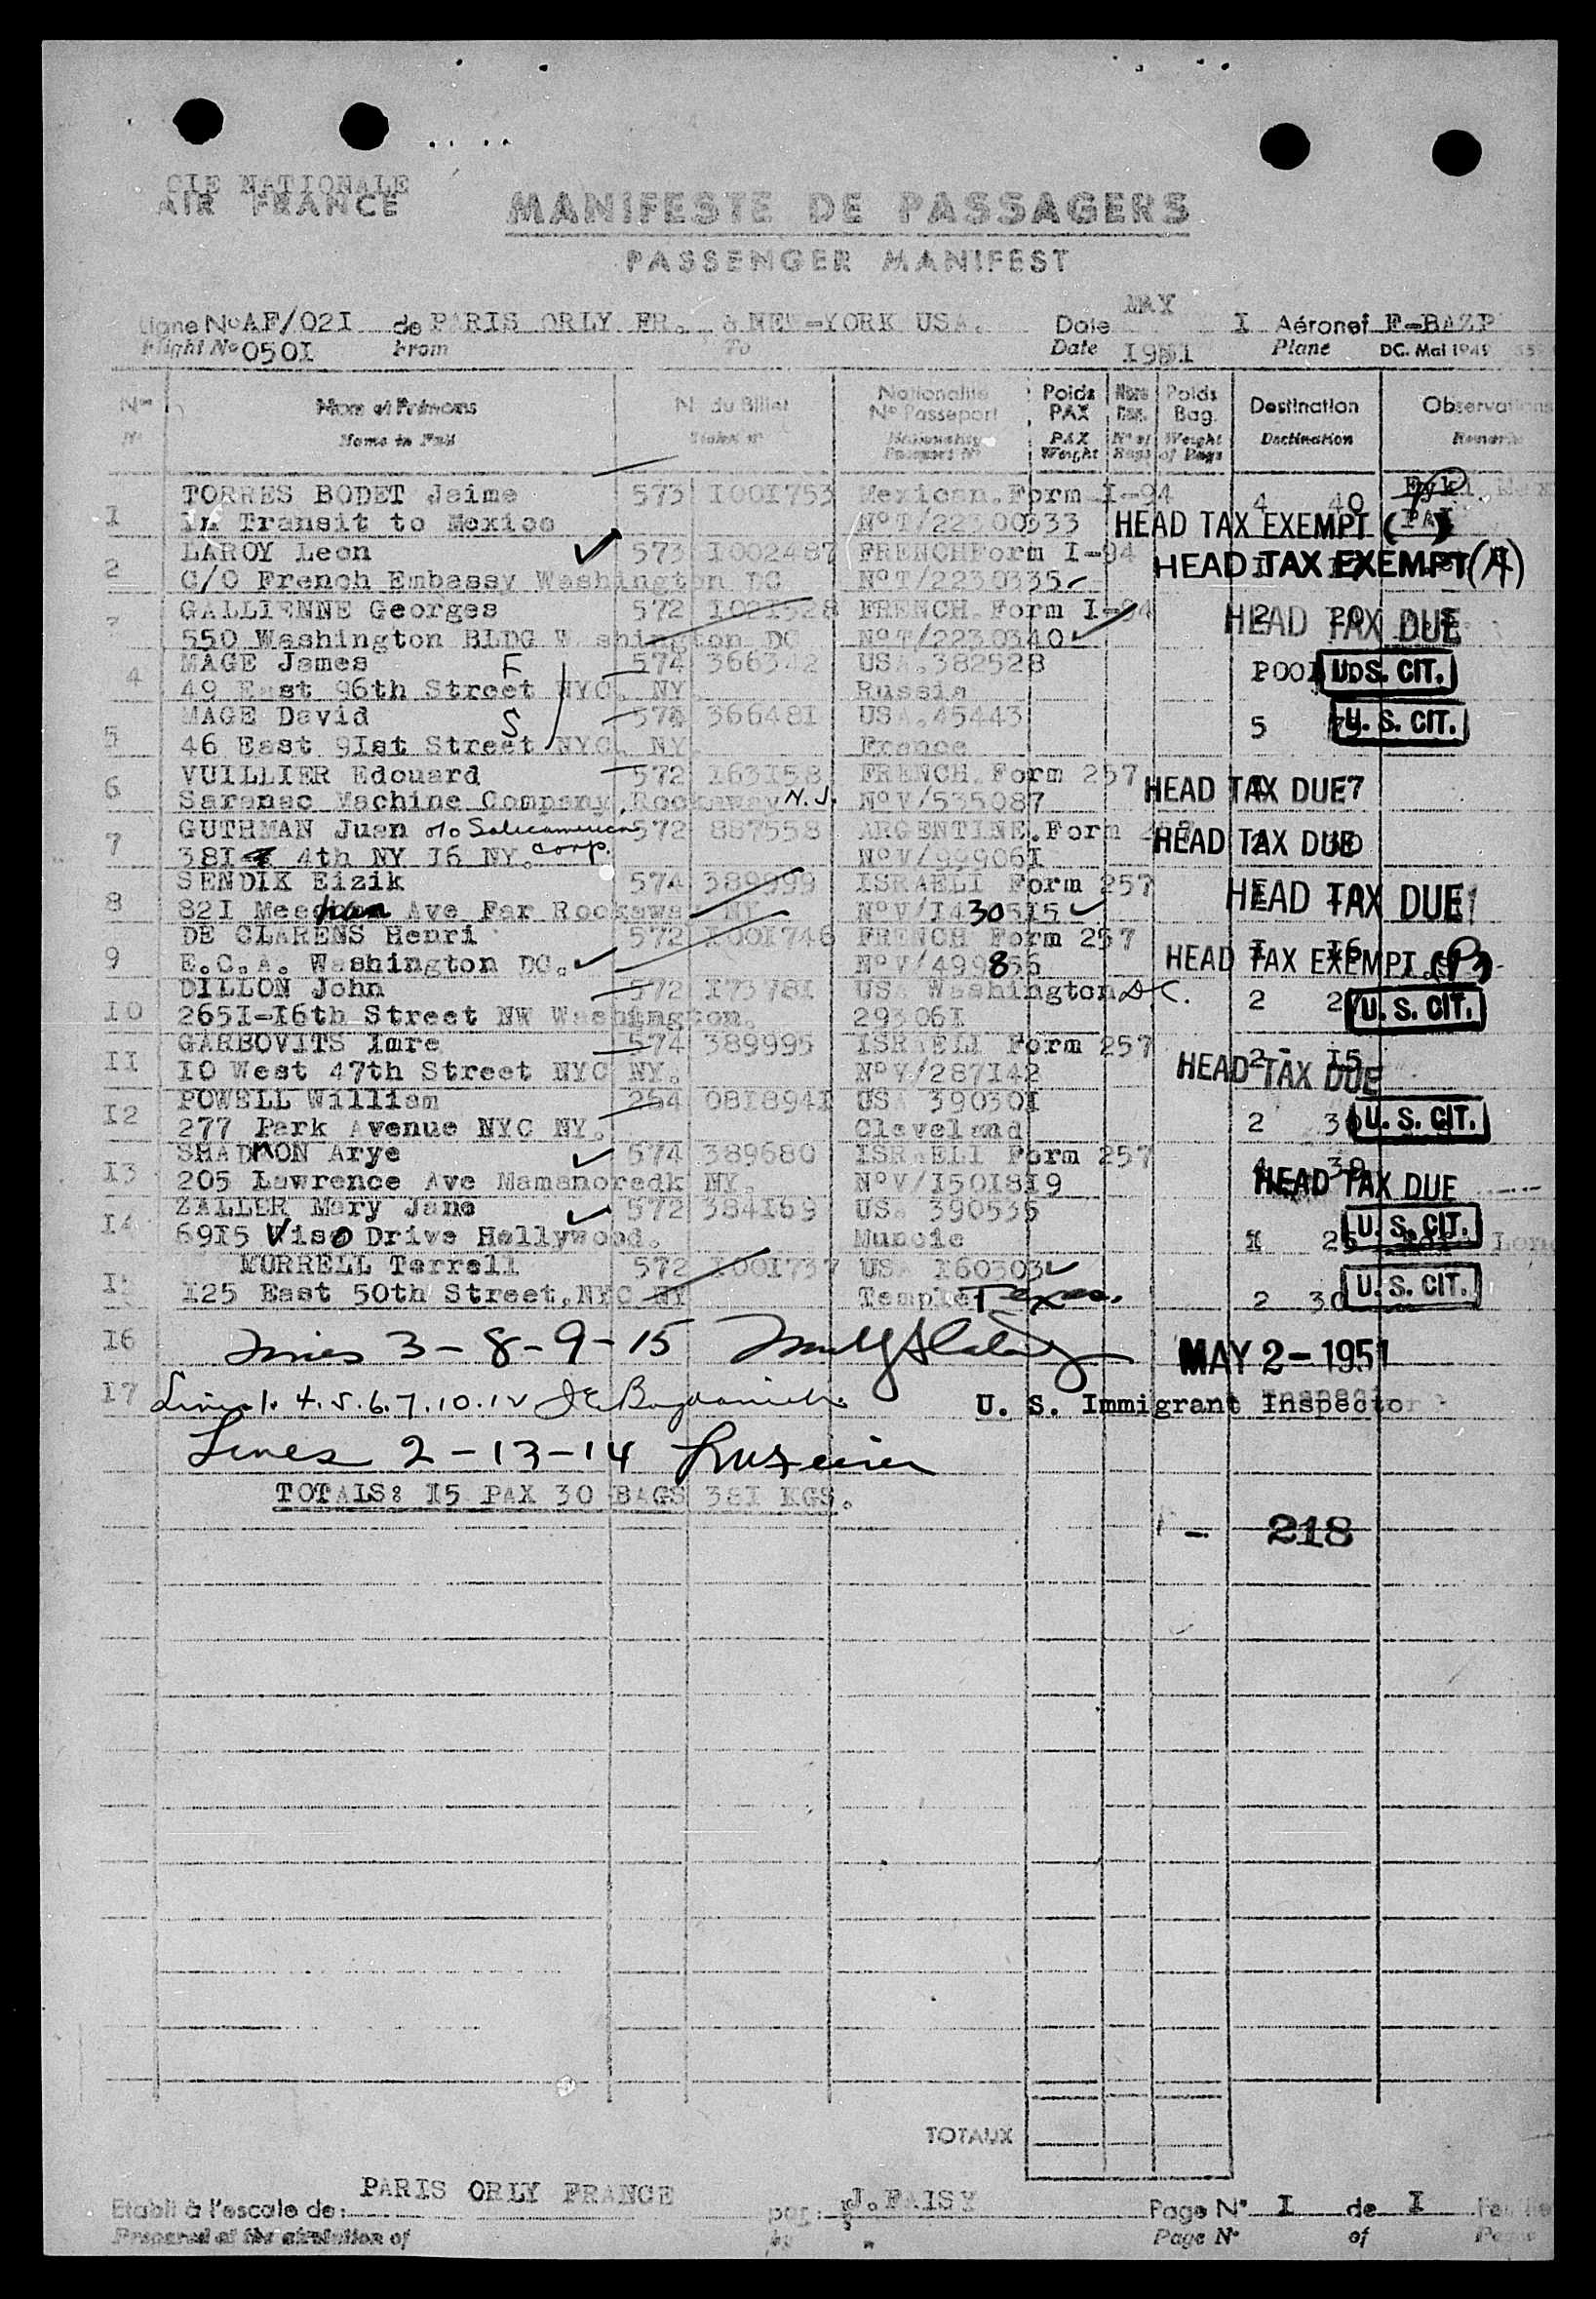 CIE NATIONALE
AIR FRANCE
MANIFESTE DE PASSAGERS
PASSENGER MANIFEST
Ligne No AF/02I de PARIS ORLY FR. à NEW-YORK USA. Date MAY I Aéronef F-BAZP
Flight No 050I From To Date I951 Plane DC. Mai 1949
Nos Noms et Prénoms N. du Billet Nationalité Poids Nbre Poids Destination Observations
No Passeport PAX Bag.
Name in Full Ticket No Nationality PAX No of Weight Destination Remarks
Passport No Weight Bags of Bags
TORRES BODET Jaime 573 I00I753 Mexican.Form I-94 4 40
I In Transit to Mexico NoT/2230033 HEAD TAX EXEMPT PAX
LAROY Leon 573 I002487 FRENCHForm I-94
2 C/O French Embassy Washington DC NoT/2230335 HEAD TAX EXEMPT (A)
GALLIENNE Georges 572 I02I528 FRENCH.Form I-94 2 20
3 550 Washington BLDG Washington DC NoT/2230340 HEAD TAX DUE
MAGE James F 574 366342 USA.382528 POOL U. S. CIT.
4 49 East 96th Street NYC. NY. Russia
MAGE David S 574 36648I USA.45443 5 U. S. CIT.
5 46 East 9Ist Street NYC. NY. France
VUILLIER Edouard 572 I63I58 FRENCH.Form 257
6 Saranac Machine Company,Rockaway N.J. NoV/535087 HEAD TAX DUE
GUTHMAN Juan c/o Salicamerican 572 887558 ARGENTINE.Form 257
7 38I 4th NY I6 NY. corp. NoV/99906I HEAD TAX DUE
SENDIK Eizik 574 389999 ISRAELI Form 257
8 82I Ave Far Rockaway NY NoV/I430515 HEAD TAX DUE
DE CLARENS Henri 572 I00I746 FRENCH Form 257 I I6
9 E.C.A. Washington DC. NoV/499856 HEAD TAX EXEMPT
DILLON John 572 I7378I US. Washington D.C. 2 U. S. CIT.
I0 265I-I6th Street NW Washington. 29306I
GARBOVITS Imre 574 389995 ISRAELI Form 257 2 I5
II I0 West 47th Street NYC NY. NoV/287I42 HEAD TAX DUE
POWELL William 264 08I894I US 39030I 2 U. S. CIT.
I2 277 Park Avenue NYC NY. Cleveland
SHADMON Arye 574 389680 ISRAELI Form 257
I3 205 Lawrence Ave Mamanoredk NY. NoV/I50I8I9 HEAD TAX DUE
ZALLER Mary Jane 572 384I69 US. 390536 U. S. CIT.
I4 69I5 Viso Drive Hollywood. Muncie I 25
MORRELL Terrell 572 I00I737 US I60303 U. S. CIT.
I5 I25 East 50th Street,NYC NY Temple Texas. 2 30
I6 Lines 3-8-9-15 MAY 2-1951
I7 Lines 1. 4. 5. 6. 7. 10. 12 U. S. Immigrant Inspector
Lines 2-13-14
TOTALS: I5 PAX 30 BAGS 38I KGS.
- 218
TOTAUX
PARIS ORLY FRANCE J.FAISY
Etabli à l'escale de: par: Page No I de I
Prepared at the station of by Page No of